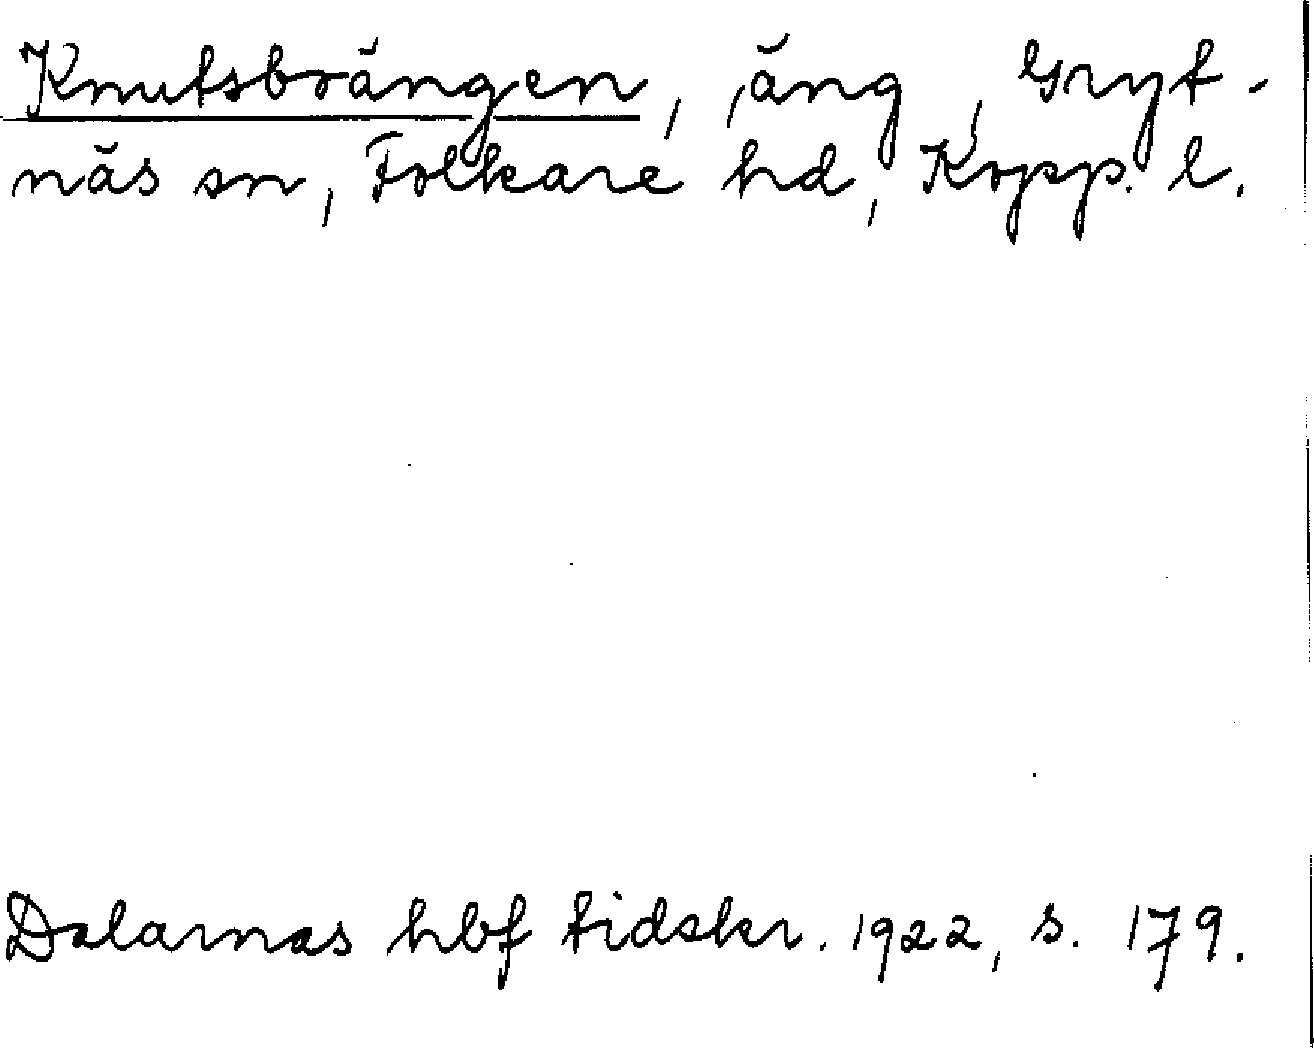 Knutsbrängen, äng, Gryt-
näs sn, Folkare hd, Kopp. l.
Dalarnas hbf tidskr. 1922, s. 179.